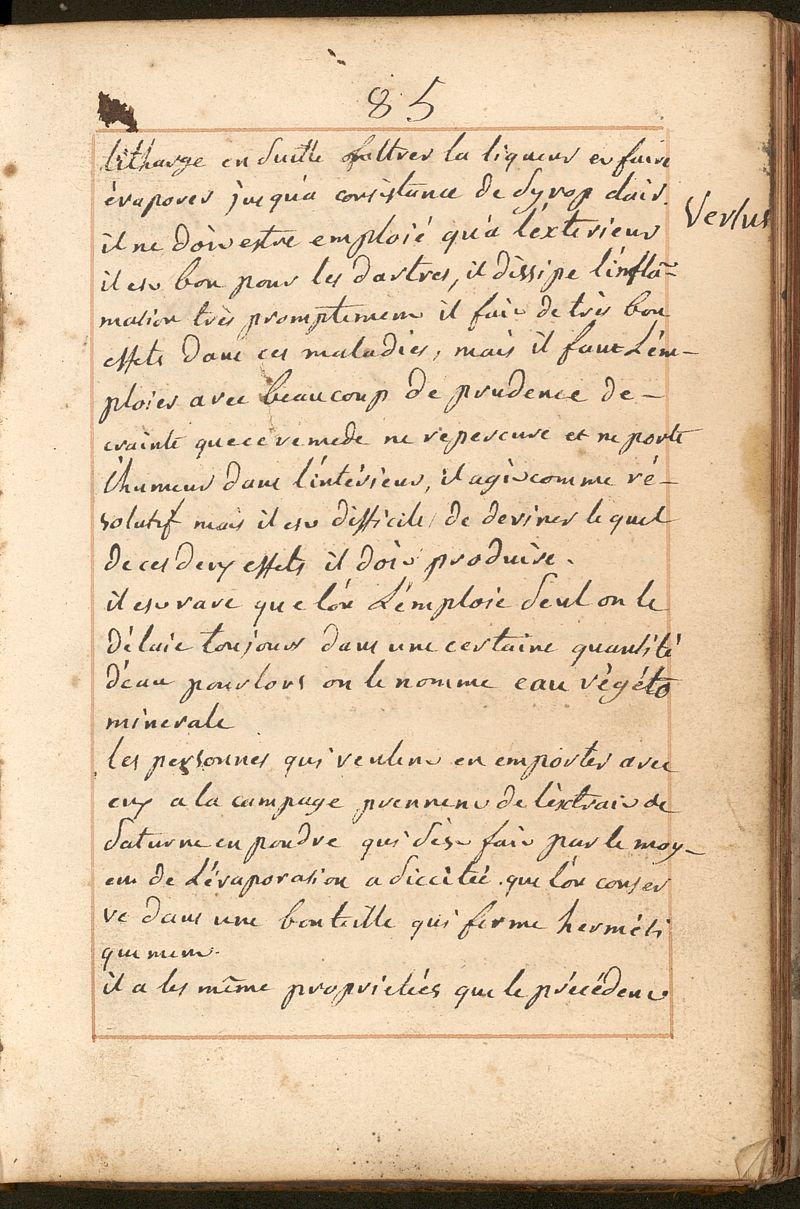 85
litharge en suitte filttrer la liqueur et faire
évaporer jusqu'a consistance de Syrop clair.
Vertus
il ne doit estre emploié qu'a l'éxterieur
il est bon pour les dartres, il dissipe l'infla-
mation très promptement il fait de très bon
effets dans ces maladies, mais il faut L'ém-
ploier avec beaucoup de prudence de-
crainte que ce remede ne repercure et ne porte
l'humeur dans l'intérieur, il agit comme ré-
solutif mais il est difficile de deviner le quel
de ces deux effets il doit produire.
il est rare que l'on L'émploie seul on le
délaie toujours dans une certaine quantité
d'éau pour lors on le nomme eau végéto
minerale
les personnes qui veulent en emporter avec
eux a la campage prennent de l'éxtrait de
saturne en poudre qui s'est fait par le moy-
en de L'évaporation a siccitée que l'on conser
ve dans une bouteille qui ferme herméti
quement.
il a les même proprietées que le précédent